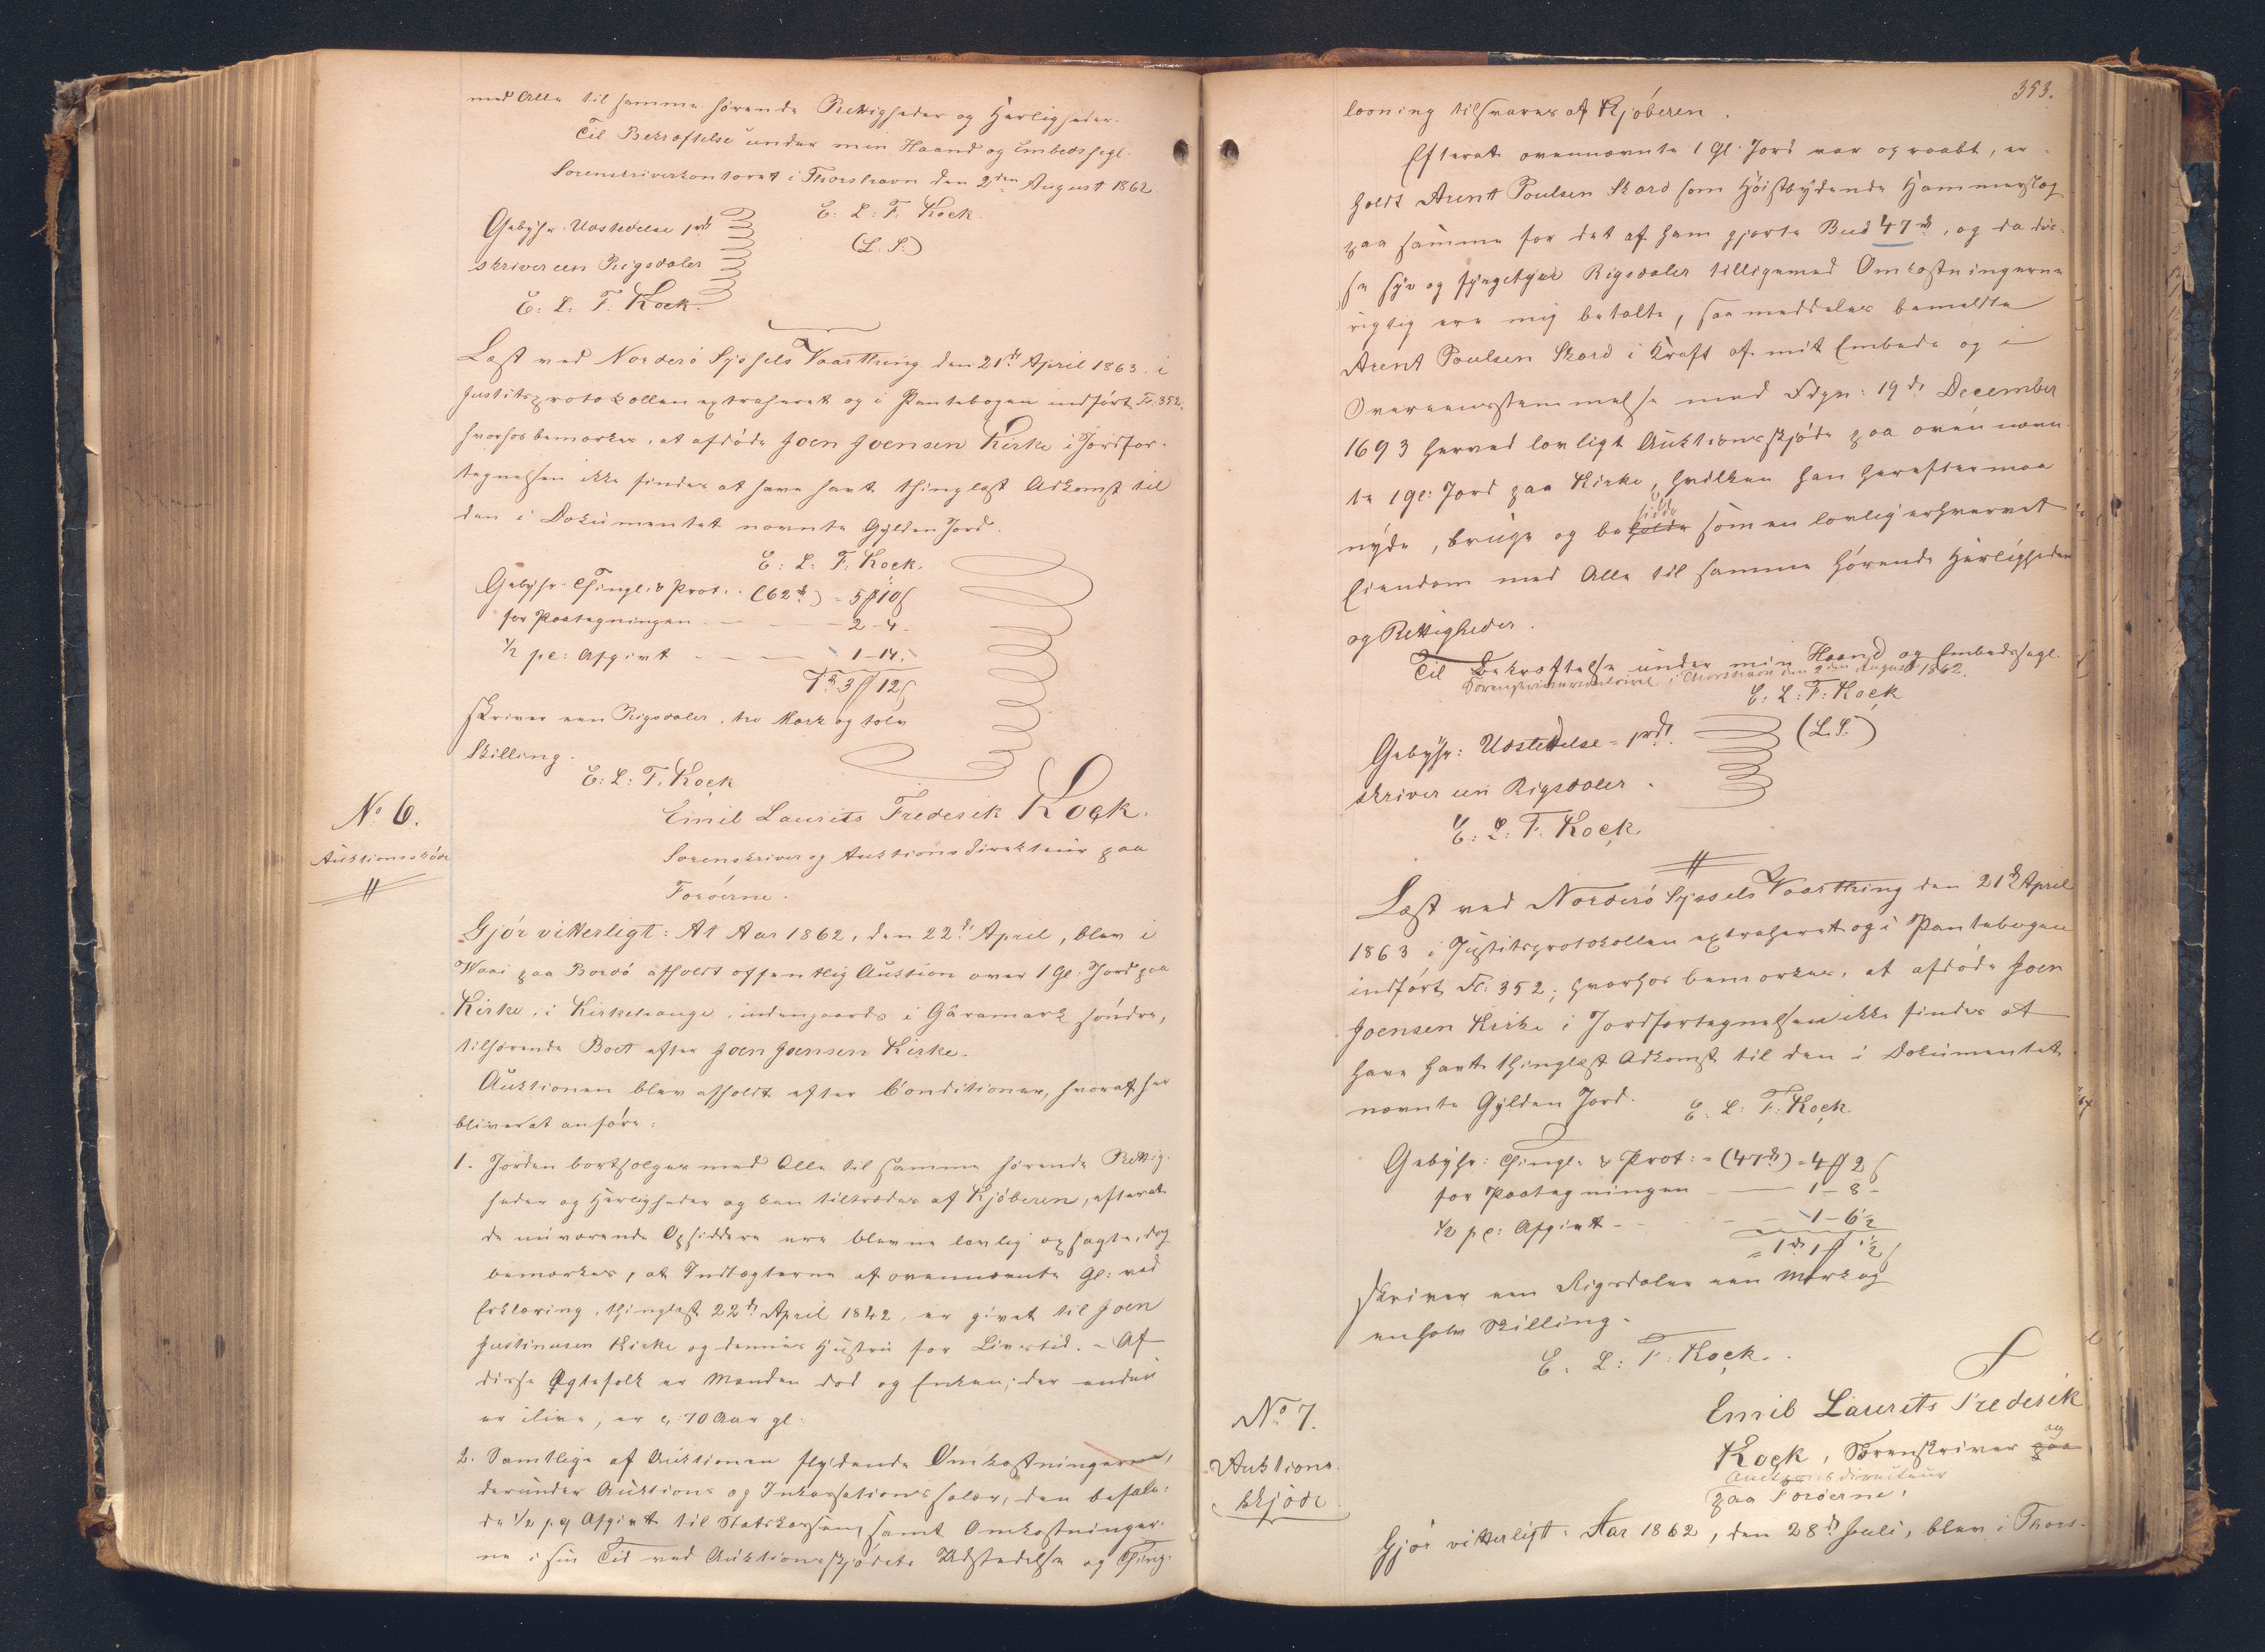 med Alle til samme hørende Rettigheder og Herligheder.
Til Bekræftelse under min Haand og Embedssegl.
Sorenskriverkontoret i Thorshavn den 2den August 1862.
E: L: F. Kock.
(L. S.)
Gebyhr. Udstedelse 1rd
skriver een Rigsdaler
E: L: F. Kock.
Læst ved Norderø Syssels Vaarthing den 21de April 1863. i
Justitsprotokollen extraheret og i Pantebogen indført Fo: 352.
hvorhos bemærkes, at afdøde Joen Joensen Kirke i Jordfor-
tegnelsen ikke findes at have havt thinglæst Adkomst til
den i Dokumentet nævnte Gylden Jord.
E: L: F: Kock.
Gebyhr. Thingl: & Prot: (62rd) = 5 ꟻ 10 ß
for Paategningen - 2 - 4 -
1/2 pc: Afgivt - 1 - 14.
1rd 3 ꟻ 12 ß
skriver een Rigsdaler, tre Mark og tolv
Skilling.
E: L: F. Kock
No 6.
Auktionsskjøde
Emil Laurits Frederik Kock.
Sorenskriver og Auktionsdirekteur paa
Færøerne.
Gjør vitterligt: At Aar 1862, den 22de April, blev i
Waai paa Bordø afholdt offentlig Auktion over 1 Gl: Jord paa
Kirke, i Kirkehauge, indengaards i Garamark søndre,
tilhørende Boet efter Joen Joensen Kirke.
Auktionen blev afholdt efter Conditioner, hvoraf her
bliver at anføre:
1. Jorden bortsælges med Alle til samme hørende Rettig-
heder og Herligheder og kan tiltrædes af Kjøberen, efterat
de nuværende Opsiddere ere blevne lovlig opsagte, dog
bemærkes, at Indtægterne af ovennævnte Gl: ved
Erklæring, thinglæst 22de April 1842, er givet til Joen
Justinusen Kirke og dennes Hustru for Livstid. - Af
disse Ægtefolk er Manden død og Enken, der endnu
er ilive, er c: 70 Aar gl:
2. Samtlige af Auktionen flydende Omkostningerne,
derunder Auktions og Inkassationssalær, den befale-
de 1/2 pC Afgivt til Statskassen, samt Omkostninger-
ne i sin Tid ved Auktionsskjødets Udstedelse og Thing-
353.
læsning tilsvares af Kjøberen.
Efterat ovennævnte 1 Gl: Jord var opraabt, er-
holdt Arent Poulsen Skard som Høistbydende Hammerslag
paa samme for det af ham gjorte Bud 47rd, og da dis-
se syv og fyrgetyve Rigsdaler tilligemed Omkostningerne
rigtig ere mig betalte, saa meddeles bemeldte
Arent Poulsen Skard i Kraft af mit Embede og i
Overeensstemmelse med Fdgn: 19de December
1693 herved lovligt Auktionsskjøde paa ovennævn-
te 1 Gl: Jord paa Kirke, hvilken han herefter maa
nyde, bruge og beholde sidde som en lovlig erhvervet
Eiendom med Alle til samme hørende Herligheder
og Rettigheder.
Til Bekræftelse under min Haand og Embedssegl.
Sorenskriverkontoret i Thorshavn den 2den August 1862.
E. L: F: Kock
(L. S.)
Gebyhr: Udstedelse = 1rd.
skriver een Rigsdaler.
E: L: F. Kock.
Læst ved Norderø Syssels Vaarthing den 21de April
1863 i Justitsprotokollen extraheret og i Pantebogen
indført Fo: 352; hvorhos bemærkes, at afdøde Joen
Joensen Kirke i Jordfortegnelsen ikke findes at
have havt thinglæst Adkomst til den i Dokumentet
nævnte Gylden Jord.
E. L: F: Kock.
Gebyhr: Thingl: & Prot: = (47rd) = 4 ꟻ 2 ß
for Paategningen - 1 - 8 -
1/2 pc: Afgivt - 1 - 6 1/2
= 1rd 1 ꟻ 1/2 ß
skriver een Rigsdaler een Mark og
en halv Skilling.
E. L: F: Kock.
No 7.
Auktions-
skjøde
Emil Laurits Frederik
Kock, Sorenskriver paa og
Auctionsdirecteur
paa Færøerne,
Gjør vitterligt: Aar 1862, den 28de Juli, blev i Thors-